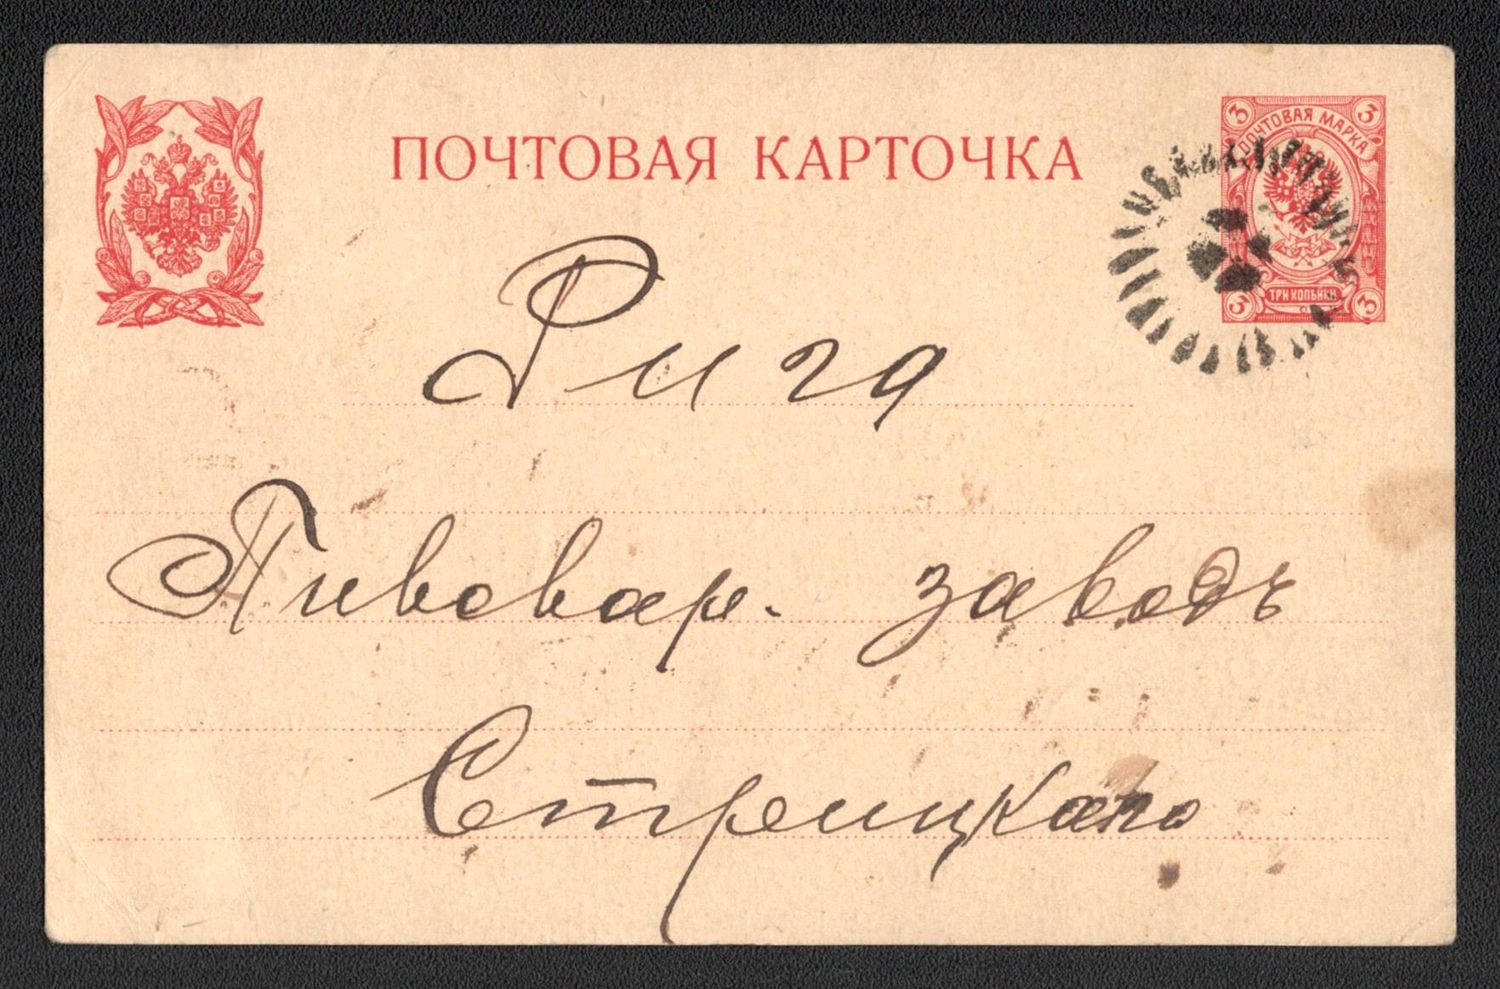 ПОЧТОВАЯ КАРТОЧКА
3 3
ПОЧТОВАЯ МАРКА
ТРИ КОПѢЙКИ
3 3
Рига
Пивовар. заводъ
Стрицкаго